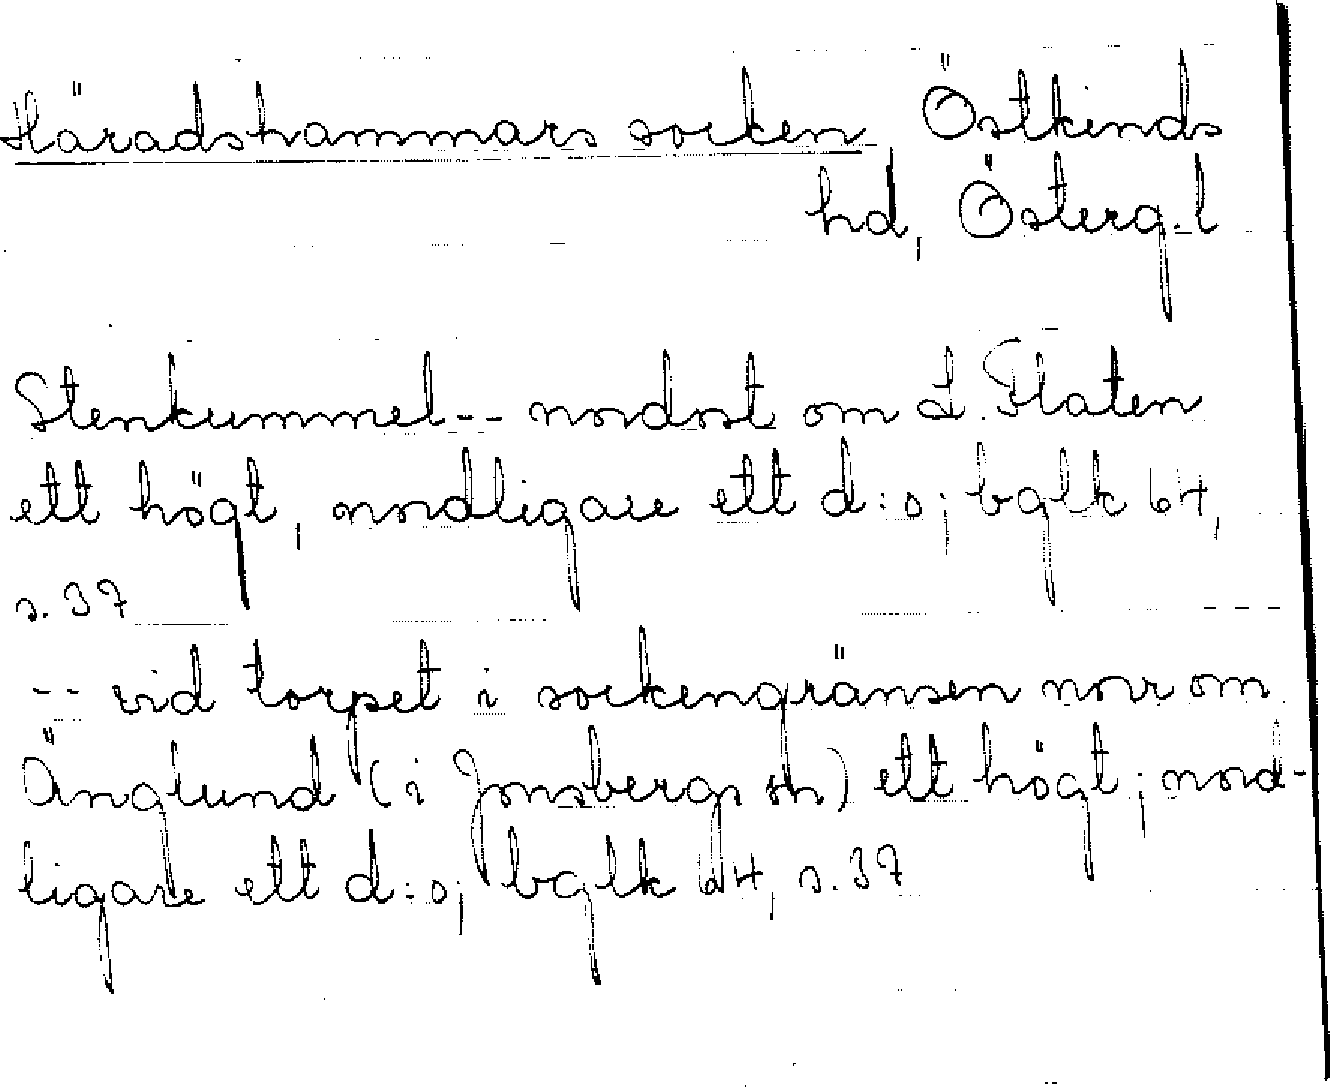 Häradshammars socken, Östkinds
hd, Österg.l
Stenkummel-- nordost om L. Flaten
ett högt, nordligare ett d:o; bglk 64,
s. 37
-- vid torpet i sockengränsen norr om
Änglund (i Jonsbergs sn) ett högt; nord-
ligare ett d:o; bglk 64, s. 37